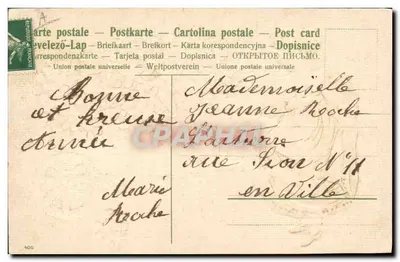 arte postale - Postkarte - Cartolina postale - Post card
evelező-Lap - Briefkaart - Brefkort - Karta korespondencyjna - Dopisnice
orrespondenzkarte - Tarjeta postal - Dopisnica - ОТКРЫТОЕ ПИСЬМО.
Union postale universelle - Weltpostverein - Unione postale universale
Bonne
et hreuse
Année
Marie
Roche
Mademoiselle
Jeanne Roche
rue Sion N° 11
en Ville